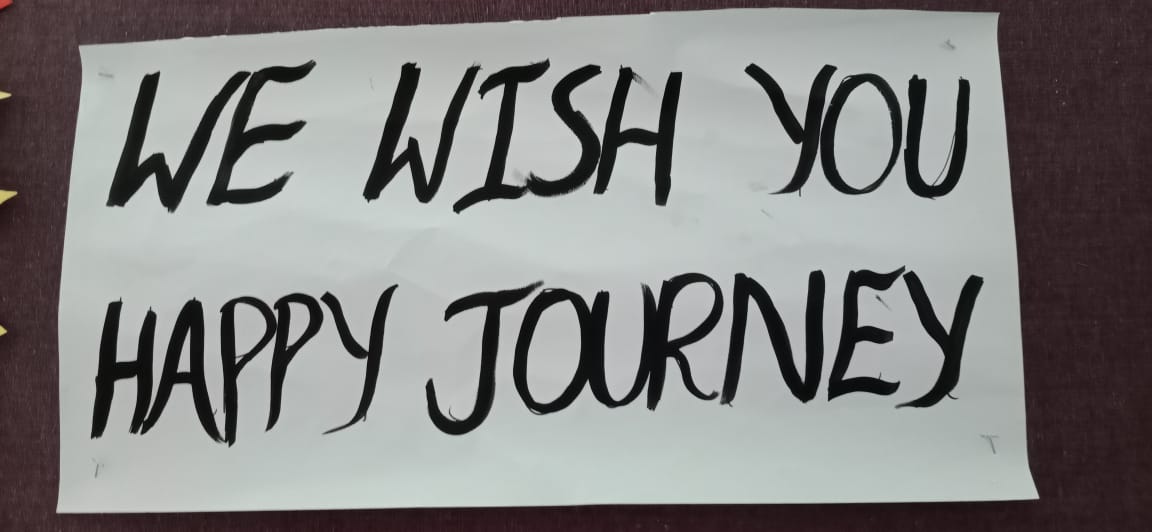 WE WISH YOU
HAPPY JOURNEY